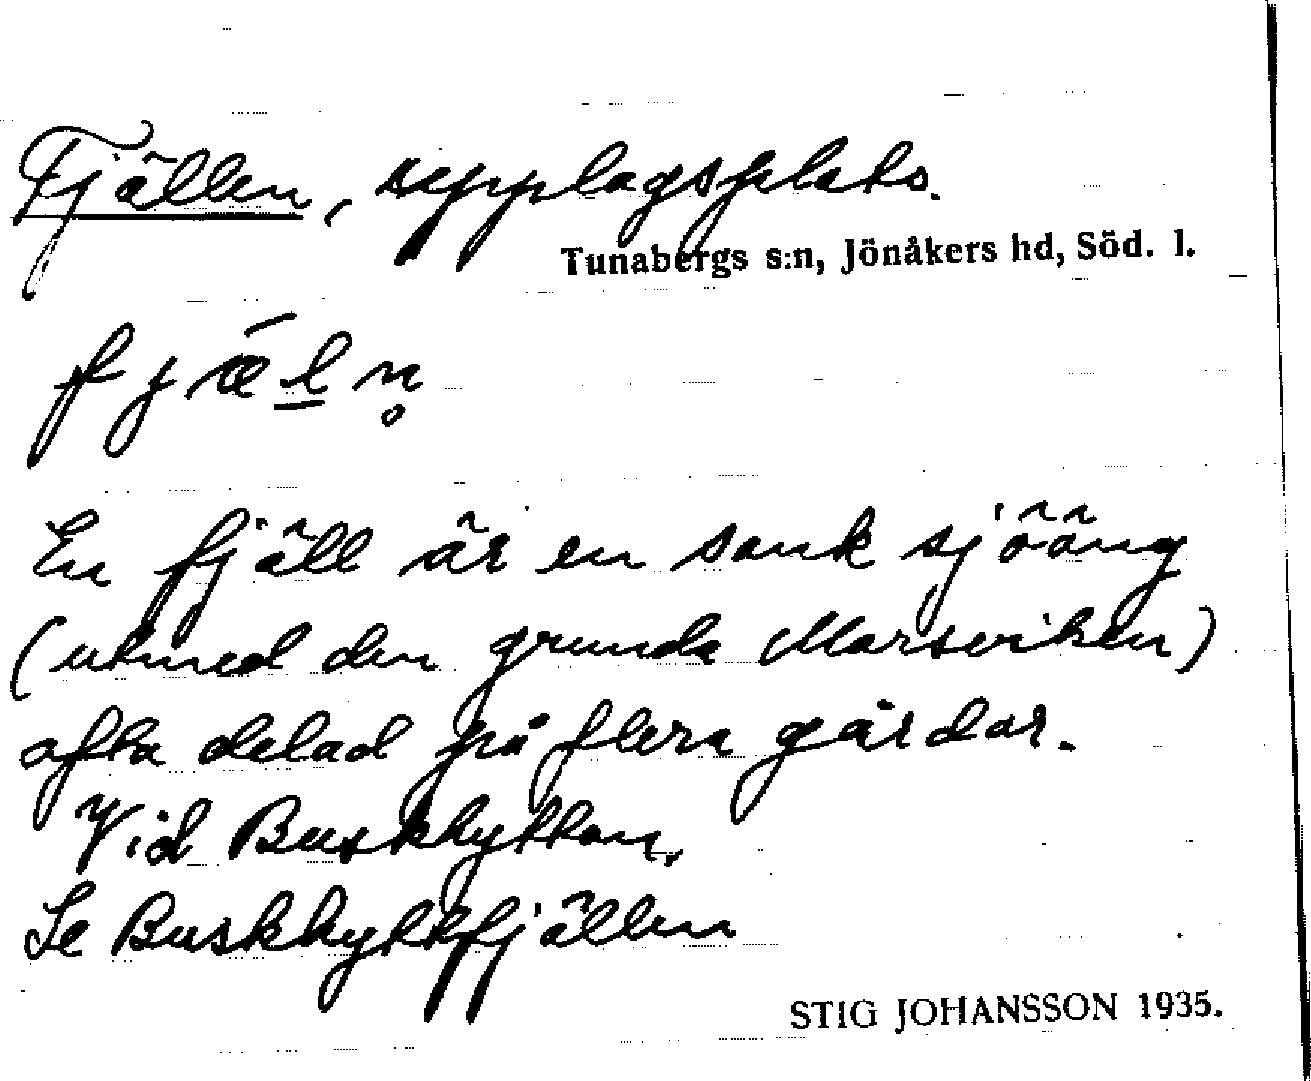 Fjällen, upplagsplats.
Tunabergs s:n, Jönåkers hd, Söd. l.
fjǣl̲n̥
En fjäll är en sank sjöäng
(utmed den grunda Marsviken)
ofta delad på flera gårdar.
Vid Buskhyttan.
Se Buskhyttfjällen
STIG JOHANSSON 1935.